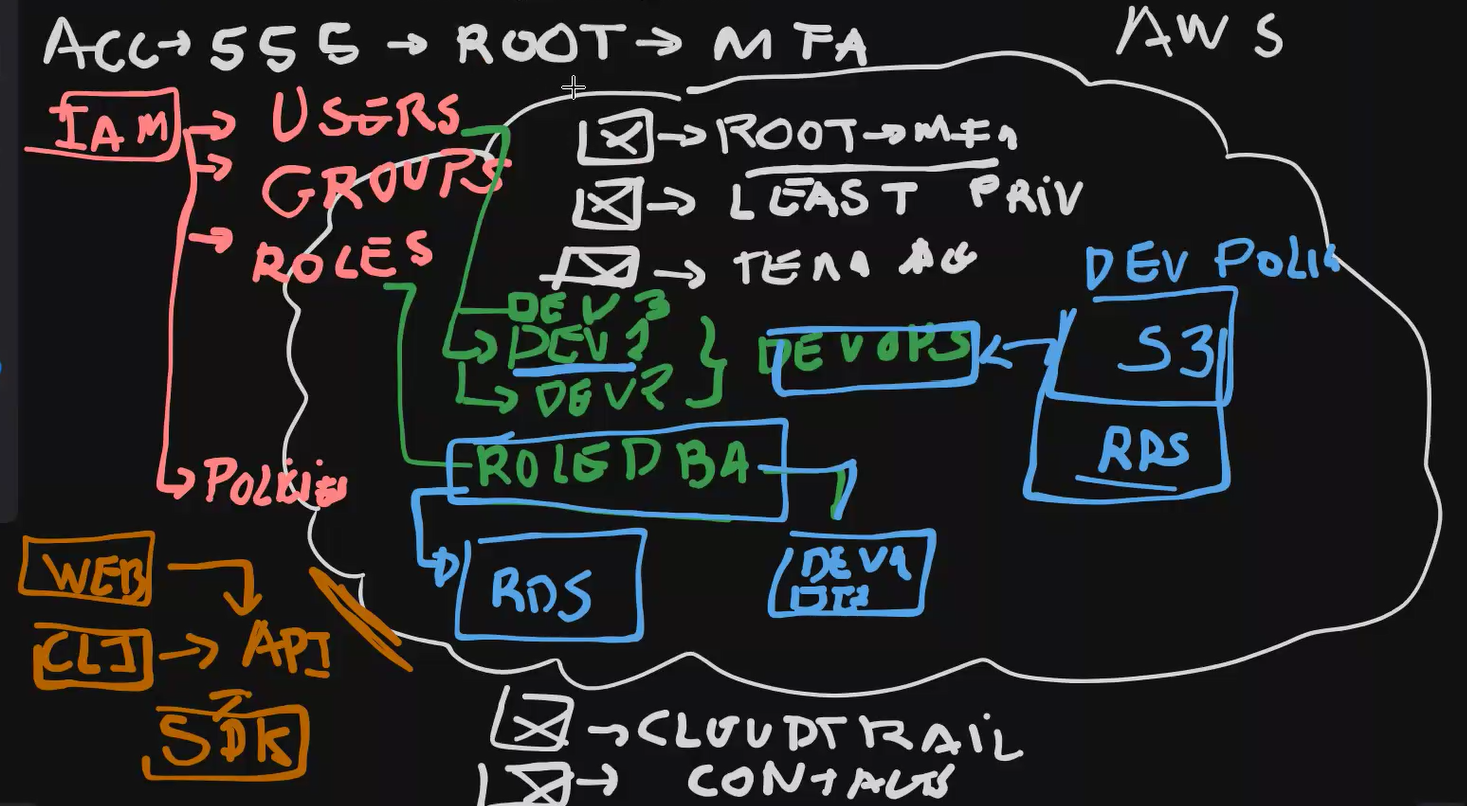 ACC → 555 → ROOT → MFA
AWS
IAM → USERS
→ GROUPS
→ ROLES
→ ROOT → MFA
→ LEAST PRIV
→
DEV POLI
DEV 3
DEV1
DEV2
DEVOPS
S3
RDS
ROLE DBA
RDS
DEV1
WEB
CLI → API
SDK
→ CLOUDTRAIL
→